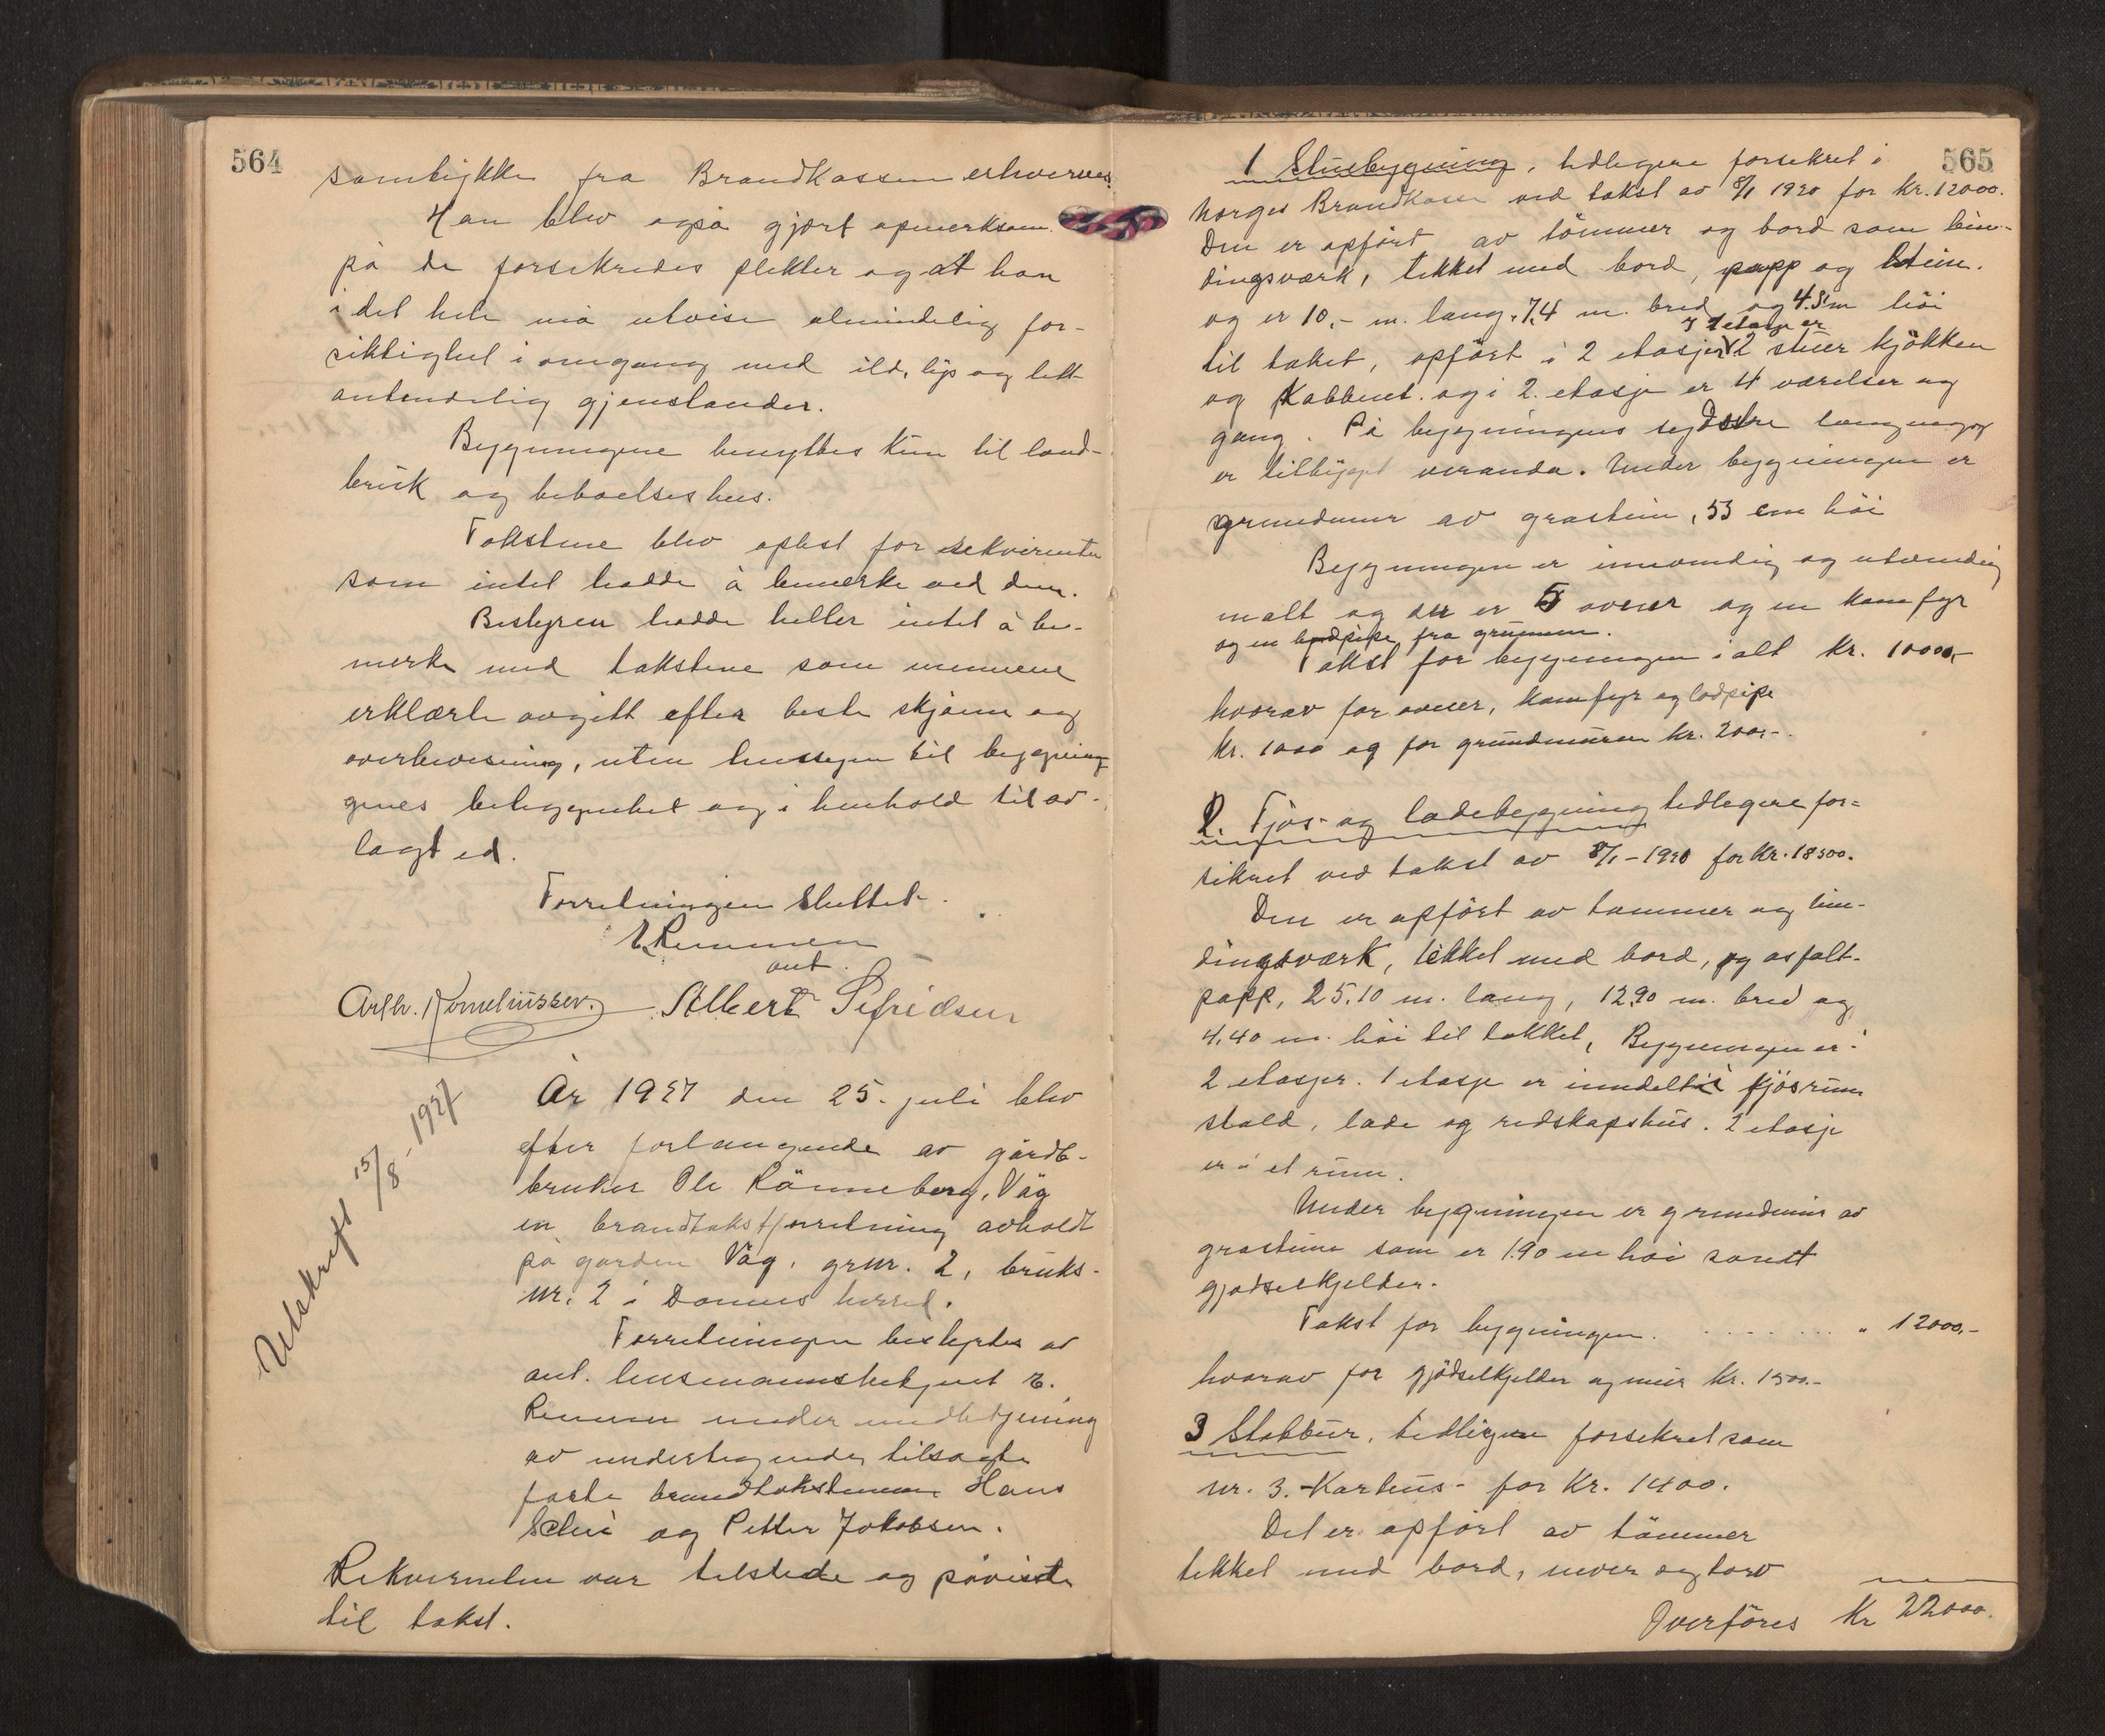 564
samtykke fra Brandkassen erhverves.
Han blev også gjort opmerksom
på de forsikredes plikter og at han
i det hele må utvise almindelig for-
siktighet i omgang med ild, lys og lett
antendelig gjenstander.
Bygningene benyttes kun til land-
bruk og beboelseshus.
Takstene blev oplest for rekvirenten
som intet hadde å bemerke ved dem.
Bestyren hadde heller intet å be-
merke med takstene som mennene
erklærte avgitt efter beste skjønn og
overbevisning, uten hensyn til bygnin-
genes beliggenhet og i henhold til av-
lagt ed.
Forretningen sluttet.
E. Remmen
aut.
Arth. Korneliussen. Albert Sefridsen
Utskrift 15/8-1927
År 1927 den 25. juli blev
efter forlangende av gårdb-
bruker Ole Rönneberg, Våg
en brandtakstforretning avholdt
på garden Våg, grnr. 2, bruks-
nr. 2 i Dønnes herred.
Forretningen bestyrtes av
aut. lensmannsbetjent E.
Remmen under medbetjening
av undertegnede tilsagte
faste brandtakstmenn Hans
Schei og Petter Jakobsen.
Rekvirenten var tilstede og påviste
til takst.
565
1 Stuebygning, tidligere forsikret i
Norges Brandkasse ved takst av 8/1 1920 for kr. 12000.
Den er opført av tömmer og bord som bin-
dingsværk, tekket med bord, papp og stein.
og er 10,- m. lang, 7,4 m. bred og 4.5 m höi
til taket, opfört i 2 etasjer. I 1 etasje er 2 stuer kjökken
og kabbinet. og i 2. etasje er 4 værelser og
gang. På bygningens sydøstre langvegg
er tilbygget veranda. Under bygningen er
grundmur av grastein, 53 cm höi
Bygningen er innvendig og utvendig
malt og der er 5 ovner og en komfyr
og en lodpipe fra grunnen.
Takst for bygningen i alt kr. 10000,-
hvorav for ovner, komfyr og lodpipe
kr. 1000 og for grundmuren kr. 200,-.
2. Fjøs- og ladebygning tidligere for-
sikret ved takst av 8/1-1920 for kr. 18500.
Den er opfört av tømmer og bin-
dingsværk, tekket med bord, og asfalt-
papp, 25.10 m. lang, 12.90 m. bred og
4,40 m. höi til takket, Bygningen er i
2 etasjer. 1 etasje er inndelt i fjösrum
stald, lade og redskapshus. 2 etasje
er i et rum.
Under bygningen er grundmur av
grasteine som er 1.90 m höi samt
gjødselkjelder.
Takst for bygningen. . . . . . . . . " 12000,-
hvorav for gjödselkjelder og mur kr. 1500.-
3 Stabbur, tidligere forsikret som
nr. 3. -Karhus- for kr. 1400.
Det er opført av tömmer
tekket med bord, never og torv
Overföres Kr 22000.